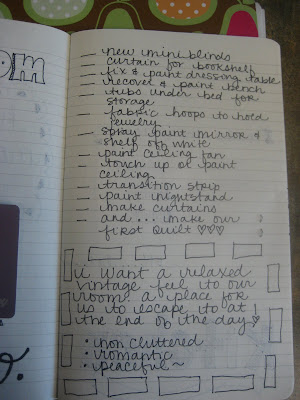 om
new mini blinds
curtain for bookshelf
fix & paint dressing table
recover & paint bench
tubs under bed for
storage
fabric hoops to hold
jewelry
spray paint mirror &
shelf off white
paint ceiling fan
touch up or paint
ceiling
transition strip
paint nightstand
make curtains
and... make our
first quilt ♡♡♡
i want a relaxed
vintage feel to our
room. a place for
us to escape to at
the end of the day ♡
• non cluttered
• romantic
• peaceful~